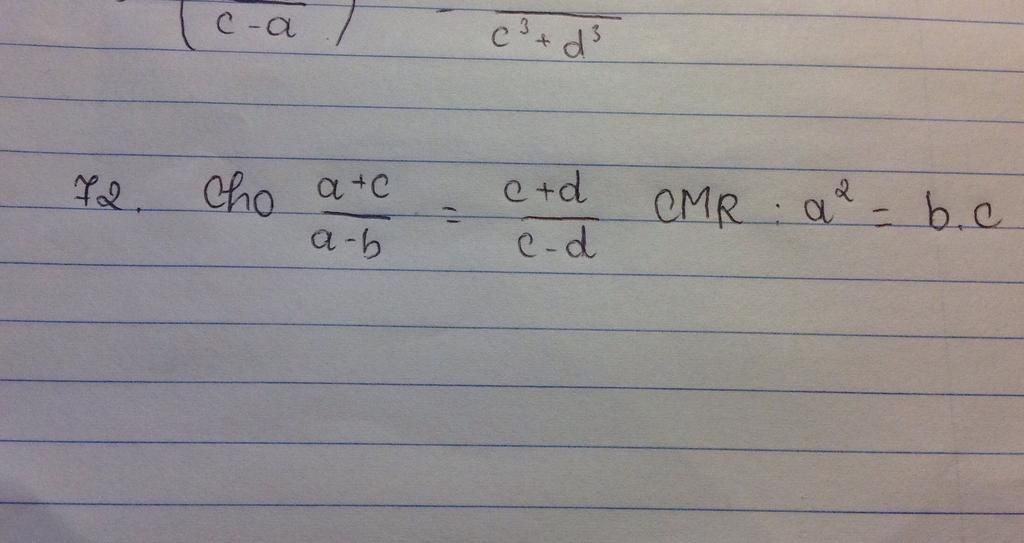 (c-a) - / c³+d³
72. Cho (a+c)/(a-b) = (c+d)/(c-d) CMR : a² = b.c